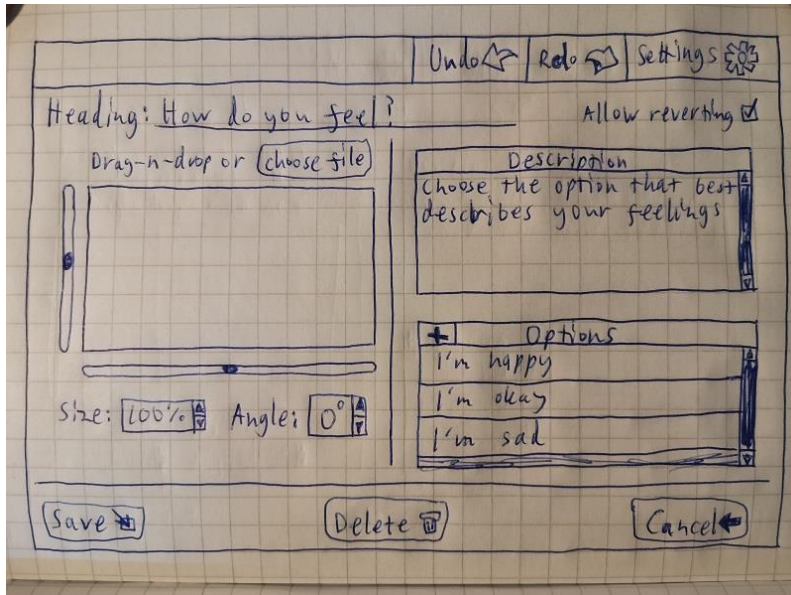 Undo Redo Settings
Heading: How do you feel?
Allow reverting
Drag-n-drop or choose file
Description
Choose the option that best
describes your feelings
+ Options
I'm happy
I'm okay
I'm sad
Size: 100% Angle: 0°
Save Delete Cancel